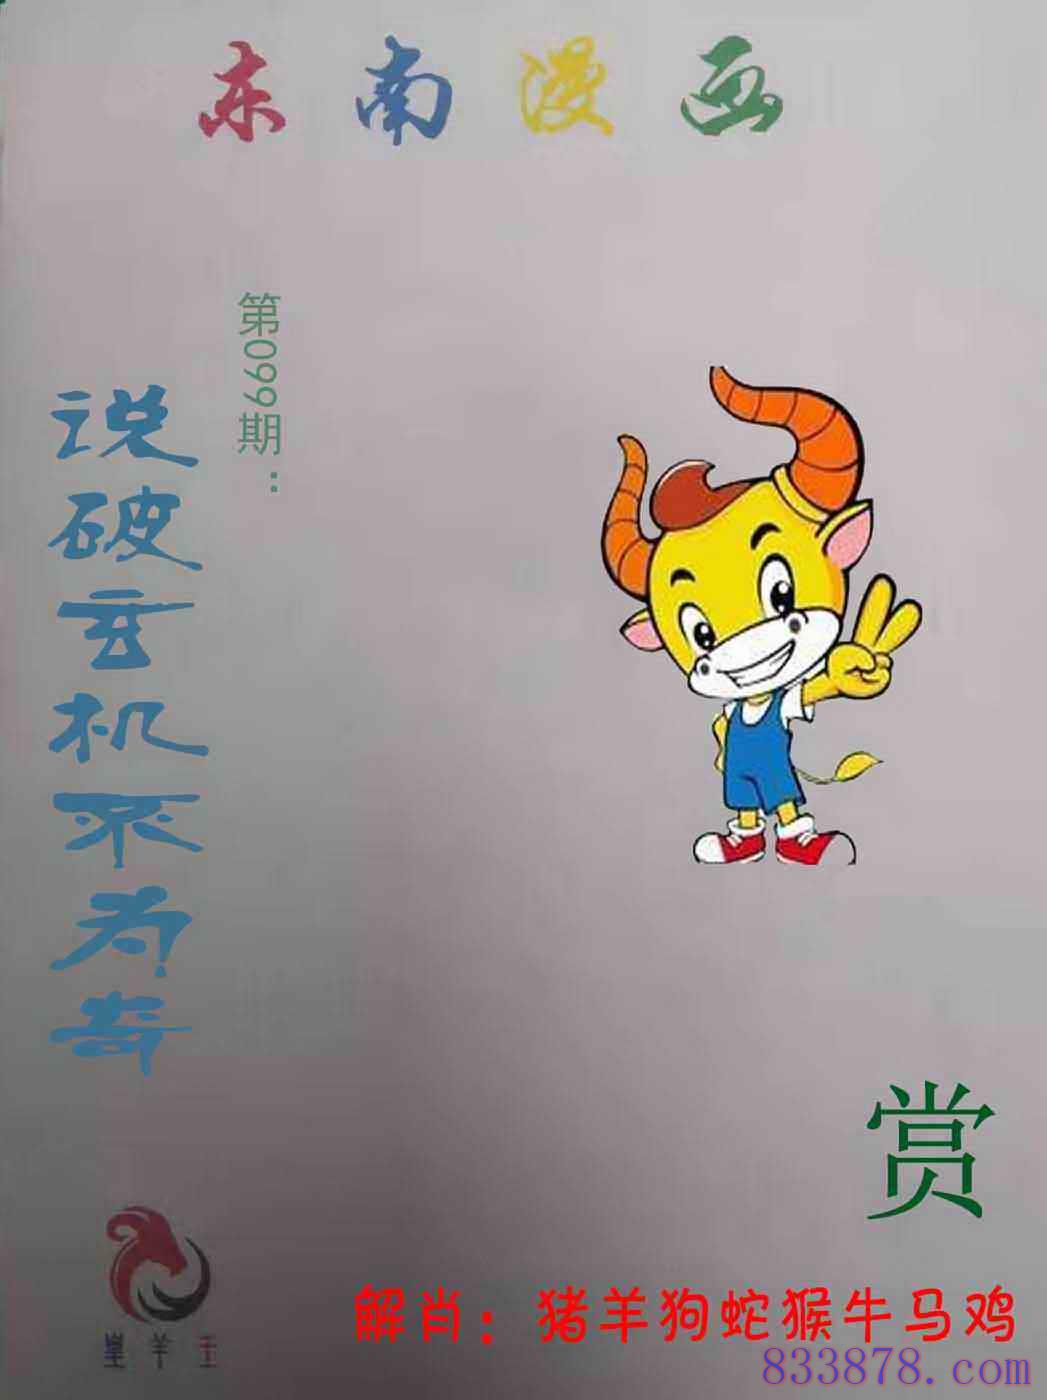 东南漫画
第099期：
说破玄机不为奇
赏
羊
解肖：猪羊狗蛇猴牛马鸡
833878.com